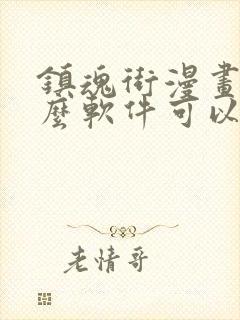 鎮魂街漫畫
麼軟件可以
老情哥